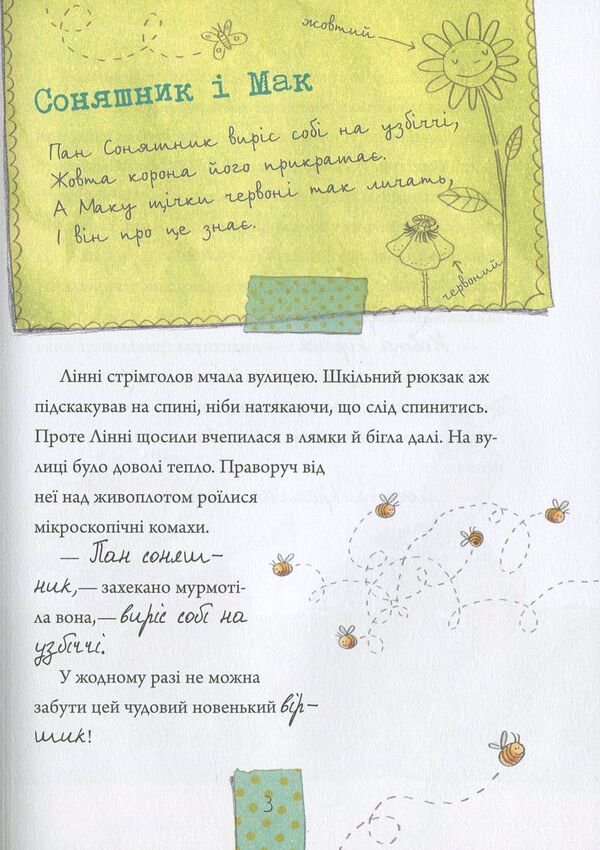 жовтий
Соняшник і Мак
Пан Соняшник виріс собі на узбіччі,
Жовта корона його прикрашає.
А Маку щічки червоні так личать,
І він про це знає.
червоний
Лінні стрімголов мчала вулицею. Шкільний рюкзак аж
підскакував на спині, ніби натякаючи, що слід спинитись.
Проте Лінні щосили вчепилася в лямки й бігла далі. На ву-
лиці було доволі тепло. Праворуч від
неї над живоплотом роїлися
мікроскопічні комахи.
— Пан соняш-
ник,— захекано мурмоті-
ла вона,— виріс собі на
узбіччі.
У жодному разі не можна
забути цей чудовий новенький вір-
шик!
3